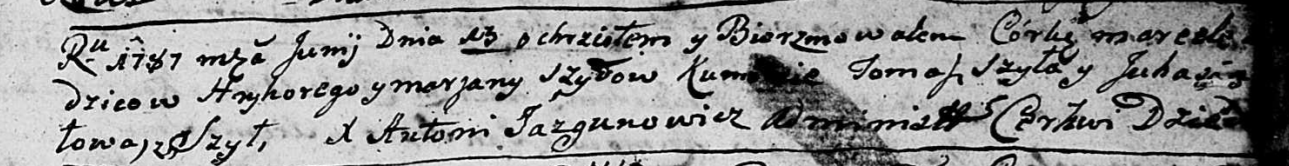 Ru 1787 mza Junij Dnia 13 ochrzciłem y Bierzmowałem Córkę
dzicow Hryhorego y Marjany Szyłow Kumowie Tomasz Szyła y
Szył, X Antoni Jazgunowicz Administr Cerkwi